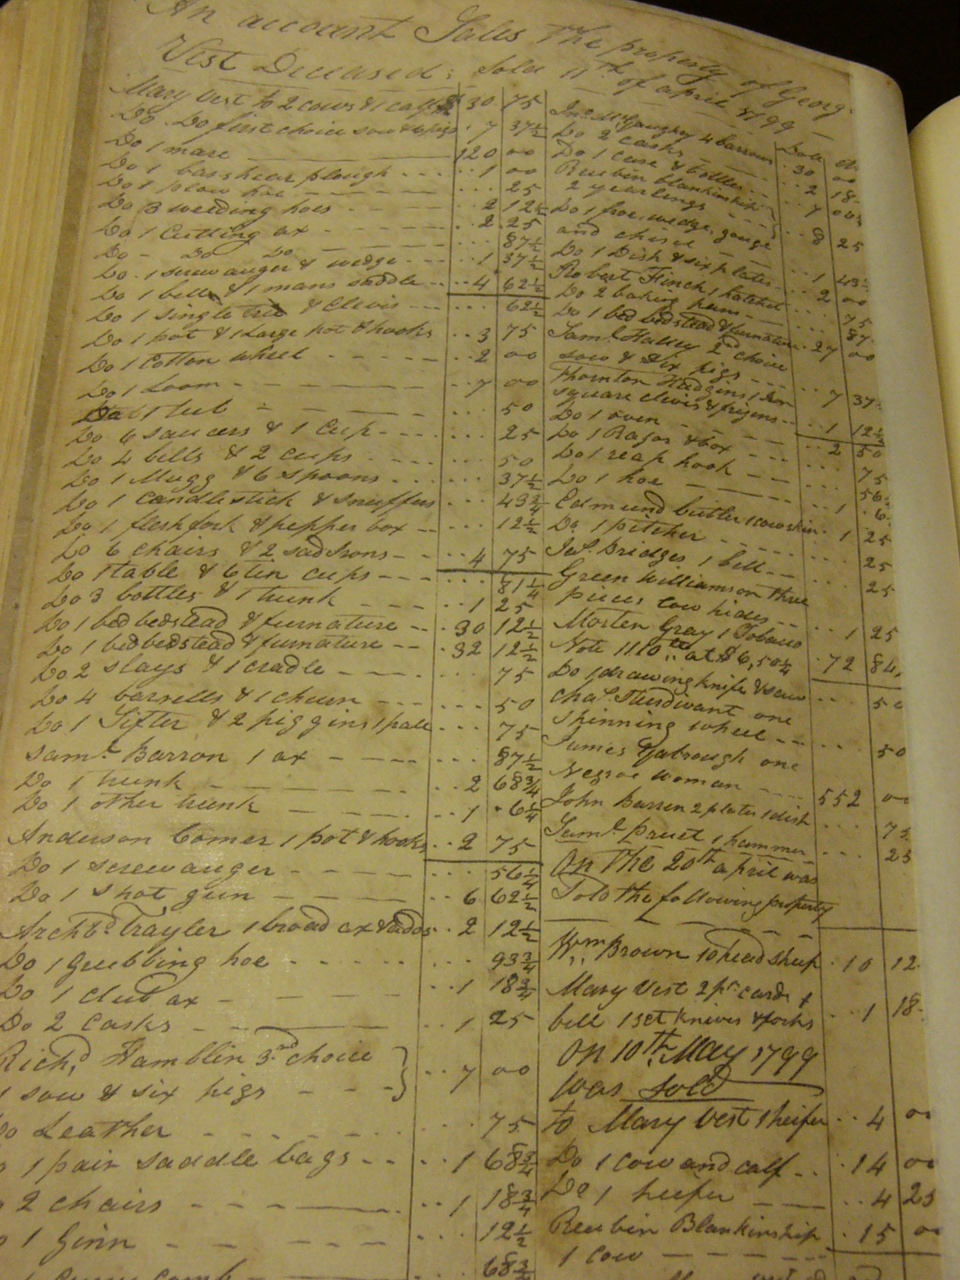 An account Sales the property of Georg
Vest Deceased; Sold 11th of april 1799
Mary Vest to 2 cows & 1 calf 30 75
Do Do first choice sow & 6 pigs 7 37½
Do 1 mare 120 00
Do 1 bar shear plough 1 00
Do 1 plow hoe 25
Do 3 weeding hoes 2 12½
Do 1 Cutting ax 2 25
Do Do Do 87½
Do 1 screw auger & wedge 1 37½
Do 1 bell & 1 mans saddle 4 62½
Do 1 single tree & clevis 62½
Do 1 pot & 1 Large pot & hooks 3 75
Do 1 Cotton wheel 2 00
Do 1 Loom 7 00
Do 1 tub 50
Do 6 saucers & 1 Cup 25
Do 4 bells & 2 cups 50
Do 1 Mugg & 6 spoons 37½
Do 1 candlestick & snuffers 43¾
Do 1 flesh fork & pepper box 12½
Do 6 chairs & 2 sad Irons 4 75
Do 1 table & 6 tin cups 81¼
Do 3 bottles & 1 trunk 1 25
Do 1 bed bedstead & furnature 30 12½
Do 1 bed bedstead & furnature 32 12½
Do 2 slays & 1 cradle 75
Do 4 barrells & 1 churn 50
Do 1 Sifter & 2 piggins 1 pale 75
Saml. Barron 1 ax 87½
Do 1 trunk 2 68¾
Do 1 other trunk 1 6¼
Anderson Comer 1 pot & hooks 2 75
Do 1 screw auger 56¼
Do 1 Shot gun 6 62½
Archbd. Trayler 1 broad ax & adds 2 12½
Do 1 grubbing hoe 93¾
Do 1 club ax 1 18¾
Do 2 casks 1 25
Richd. Hamblin 3rd choice
1 sow & six pigs 7 00
Do Leather 75
1 pair saddle bags 1 68¾
2 chairs 1 18¾
1 Ginn 12½
68¾
Dols
4 barrows 30 00
Do 2 casks 2 18
Do 1 case & bottles 7 00
Reubin Blankinship
2 yearlings 8 25
Do 1 froe, wedge, gouge
and chisel 1 43
Do 1 Dish & six plates 2 00
Robert Finch 1 hatchet 75
Do 2 baking pans 87
Do 1 bed bedstead & furnature 27 00
Saml. Halsey 2d choice
sow & six pigs 7 37
Thornton
square clevis 1 12½
Do 1 oven 2 50
Do 1 Razor & box 75
Do 1 reap hook 56
Do 1 hoe 1 6
Edmund butler 1 cow skin 1 25
Do 1 pitcher 25
Jas. Bridges 1 bell 25
Green Williamson three
pieces cow hides 1 25
Morten Gray 1 Tobacco
Note 1110 lb at $6,50¼ 72 84
Do 1 drawing knife & saw 50
Chas. Sturdivant one
spinning wheel 50
James Yabrough one
Negroe woman 552 00
John Barren 2 plates 1 dish 75
Saml. Pruet 1 hammer 25
On the 20th april was
Sold the following property
Wm. Brown 10 head sheep 10 12
Mary Vest 2 pr. cards &
bell 1 set knives & forks 1 18
On 10th May 1799
was sold
to Mary Vest 1 heifer 4 00
Do 1 cow and calf 14 00
Do 1 heifer 4 25
Reubin Blankinship
1 cow 15 00